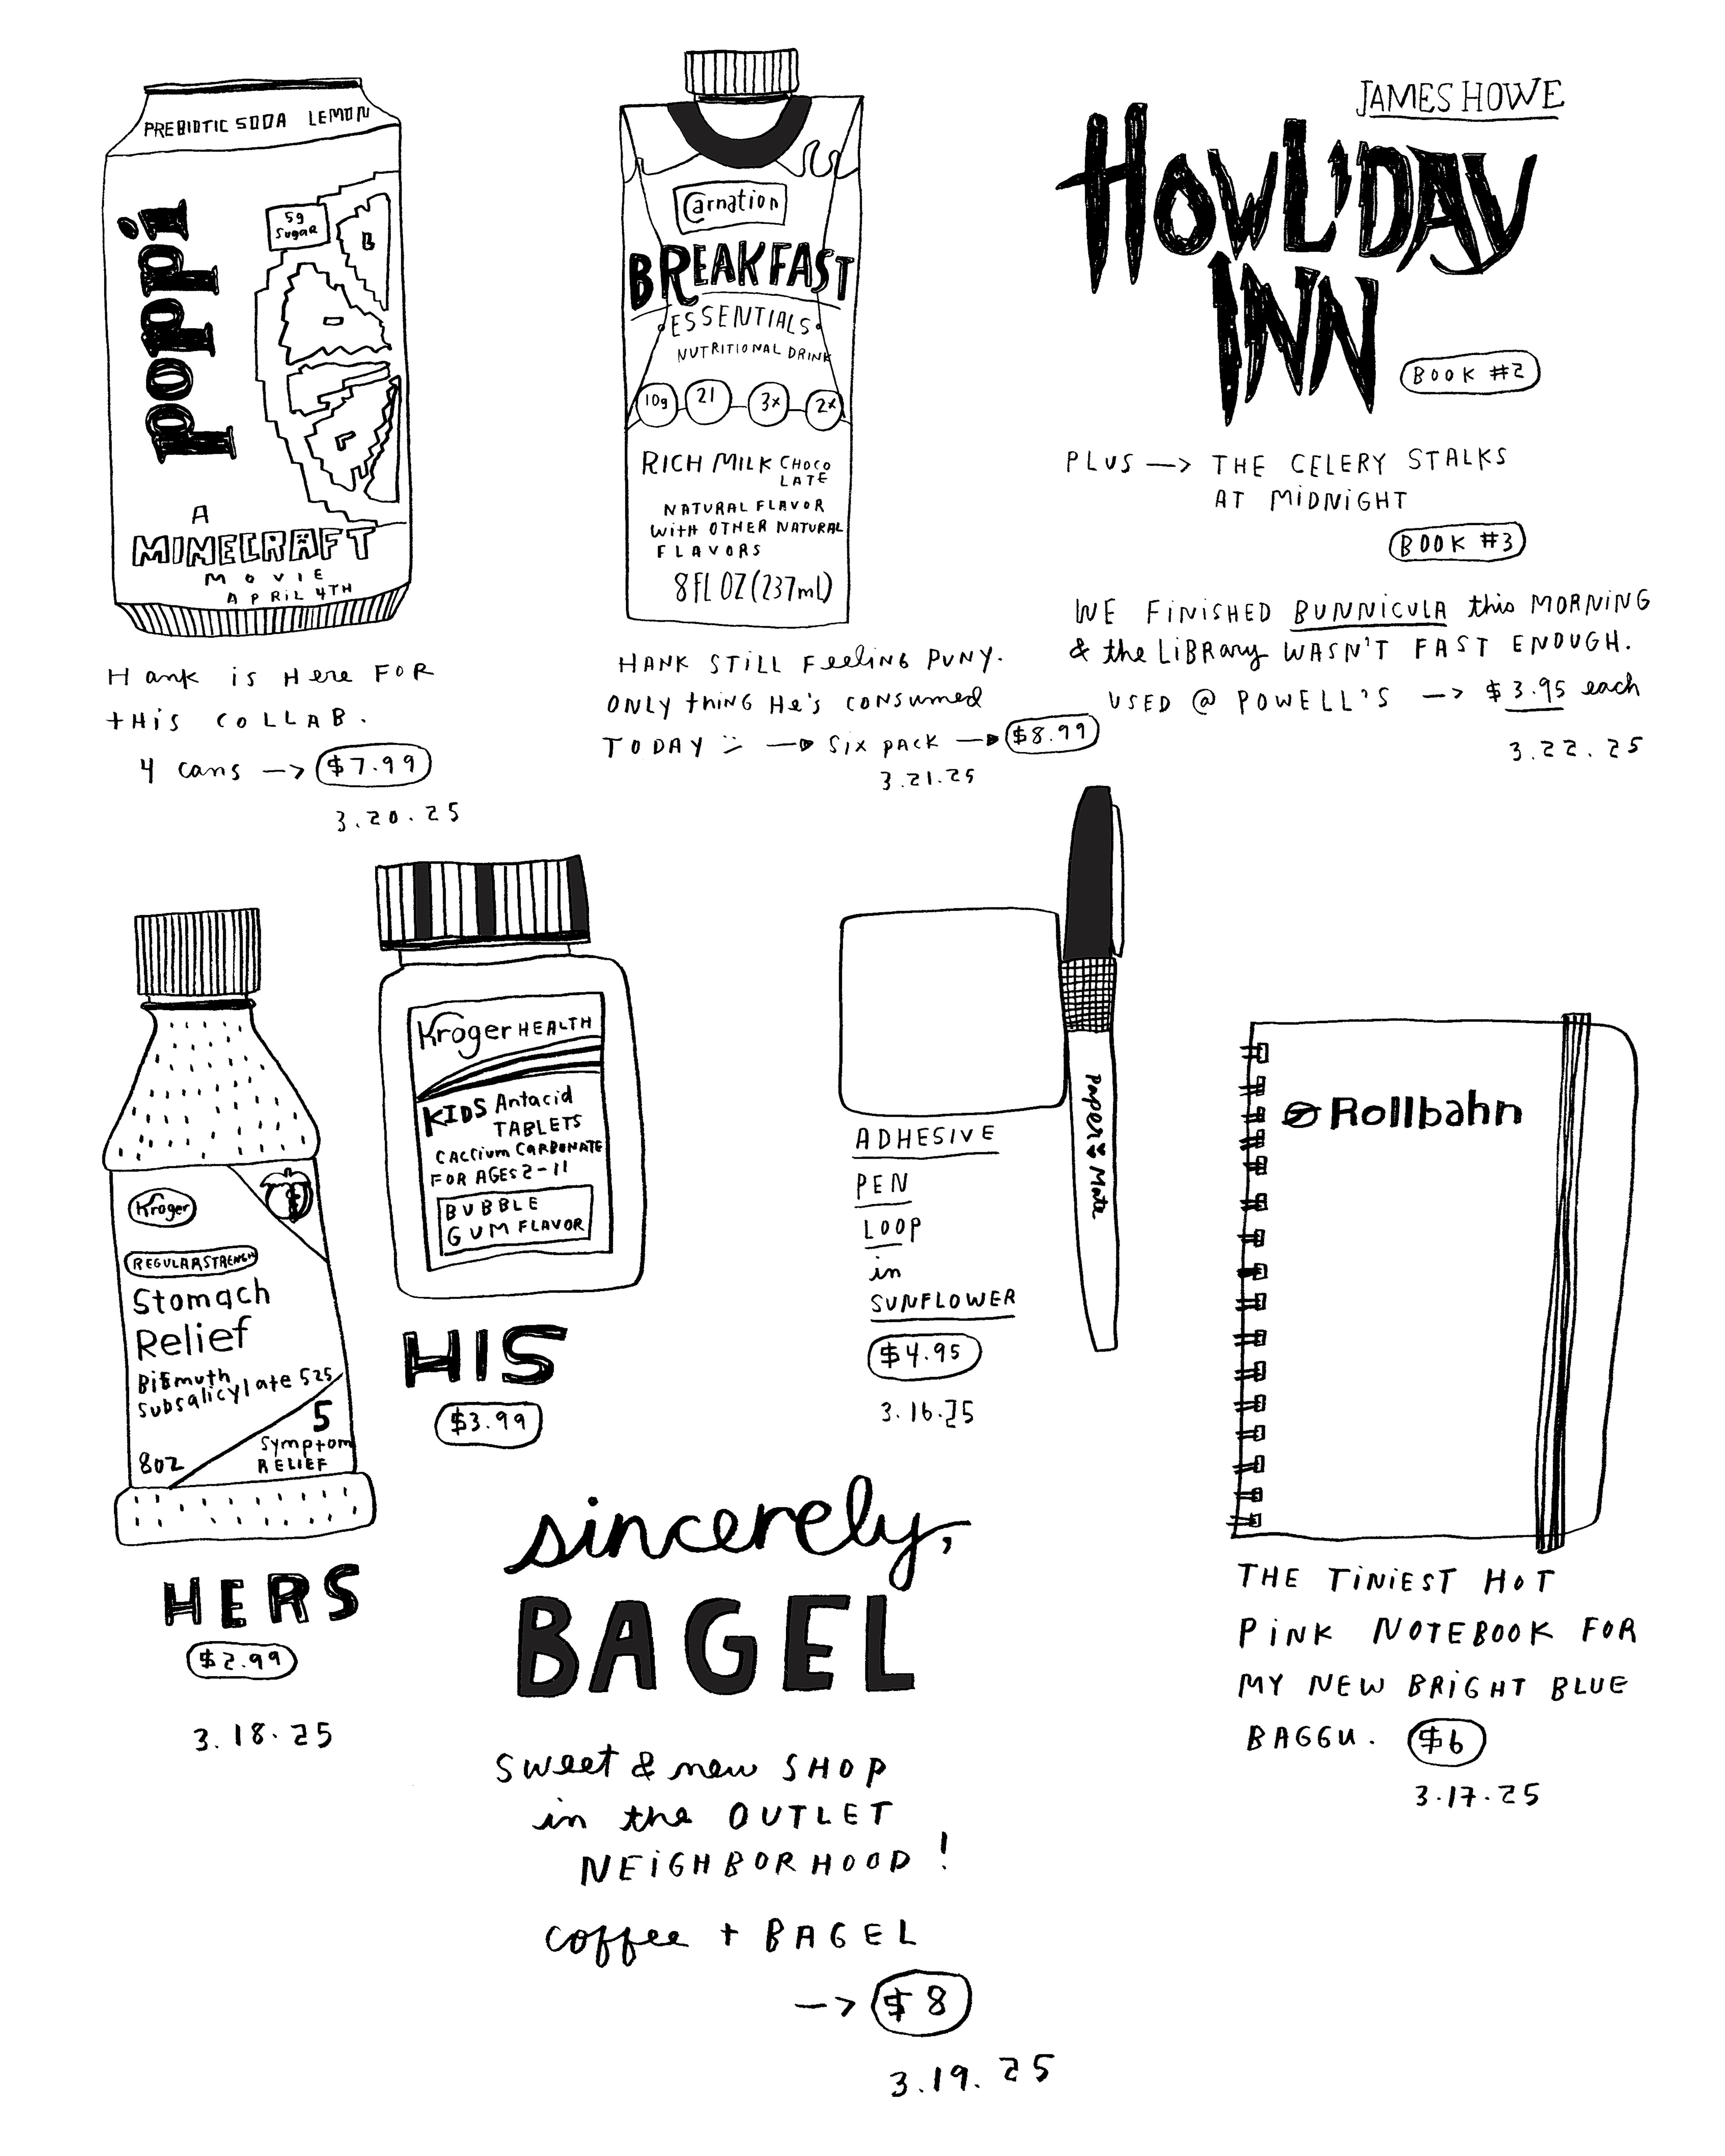 PREBIOTIC SODA LEMON
poppi
5g
Sugar
A
MINECRAFT
MOVIE
APRIL 4TH
Hank is Here FOR
tHis COLLAB.
4 cans —> $7.99
3.20.25
Carnation
BREAKFAST
ESSENTIALS
NUTRITIONAL DRINK
10g 21 3x 2x
RICH MILK CHOCO
LATE
NATURAL FLAVOR
WITH OTHER NATURAL
FLAVORS
8 FL OZ (237mL)
HANK STILL Feeling PUNY.
ONLY thing He's CONSUMED
TODAY :- —> Six PACK —> $8.99
3.21.25
JAMES HOWE
HOWL'DAY
INN
BOOK #2
PLUS —> THE CELERY STALKS
AT MIDNIGHT
BOOK #3
WE FINISHED BUNNICULA this MORNING
& the LIBRARY WASN'T FAST ENOUGH.
USED @ POWELL'S —> $3.95 each
3.22.25
Kroger
REGULAR STRENGTH
Stomach
Relief
Bismuth
Subsalicylate 525
5
Symptom
RELIEF
8oz
HERS
$2.99
3.18.25
Kroger HEALTH
KIDS Antacid
TABLETS
CALCIUM CARBONATE
FOR AGES 2-11
BUBBLE
GUM FLAVOR
HIS
$3.99
Paper Mate
ADHESIVE
PEN
LOOP
in
SUNFLOWER
$4.95
3.16.25
Rollbahn
THE TINIEST HOT
PINK NOTEBOOK FOR
MY NEW BRIGHT BLUE
BAGGU. $6
3.17.25
sincerely,
BAGEL
Sweet & new SHOP
in the OUTLET
NEIGHBORHOOD!
coffee + BAGEL
—> $8
3.19.25